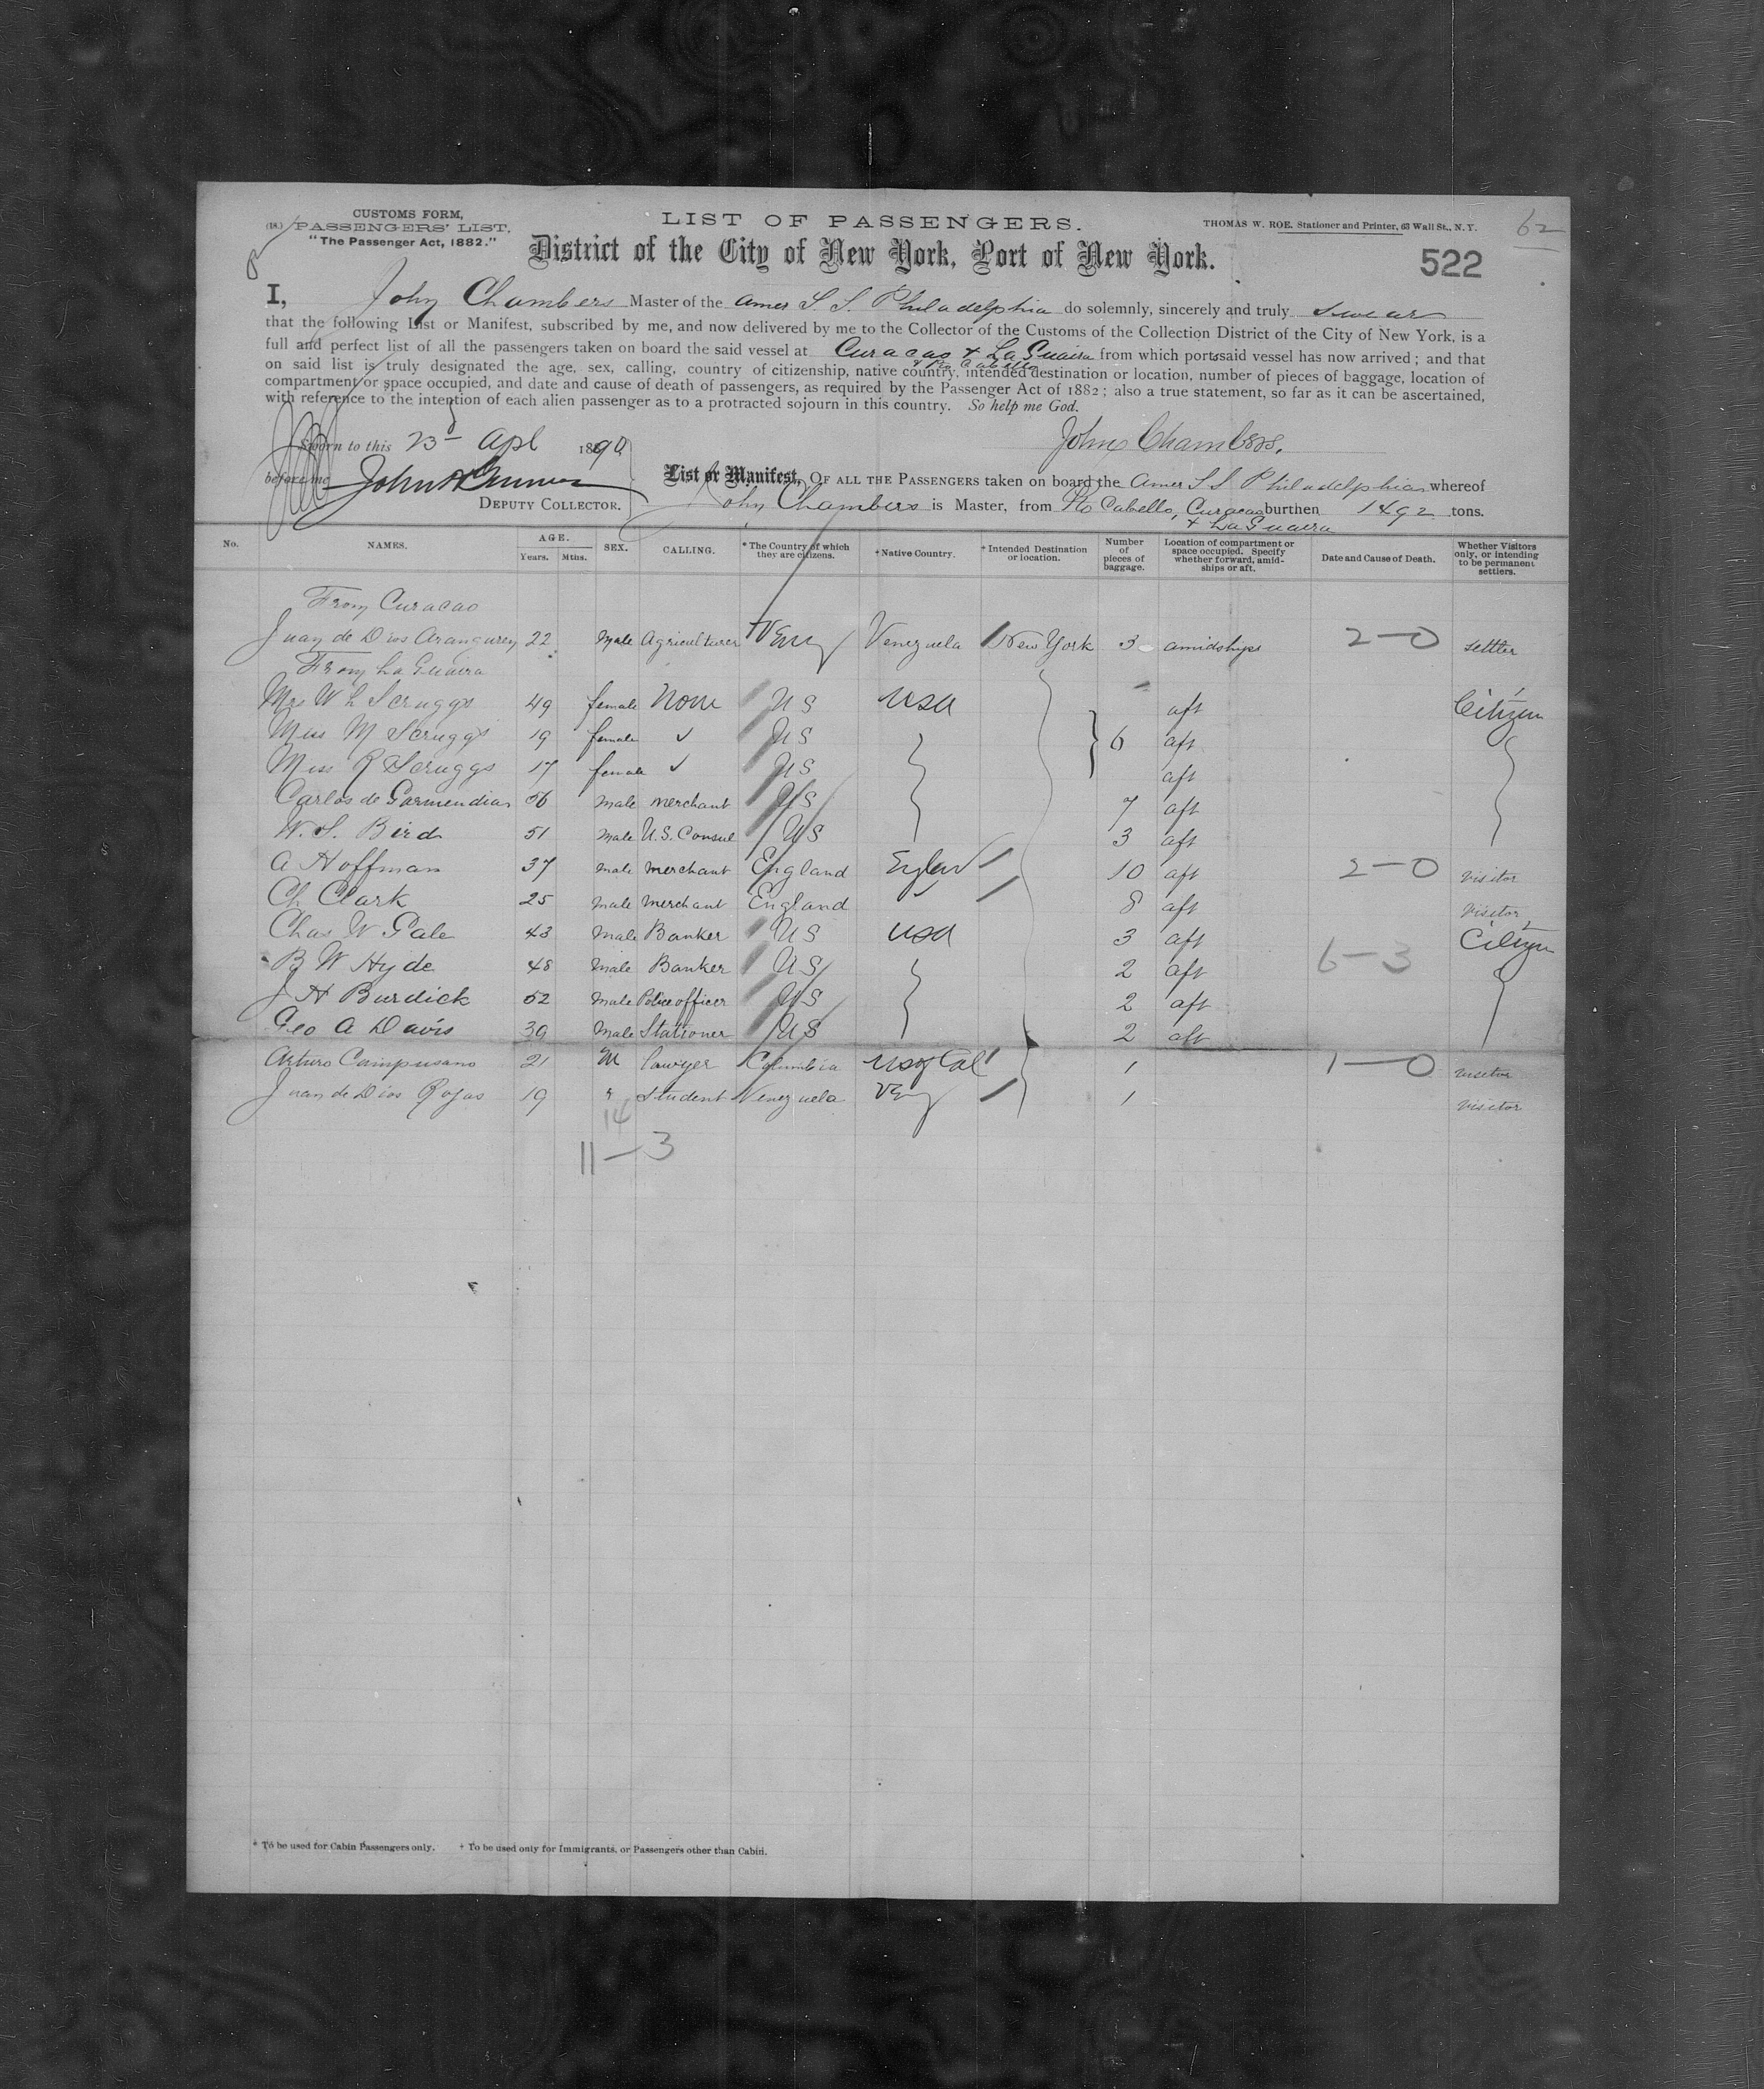 CUSTOMS FORM,
(18.) PASSENGERS' LIST.
"The Passenger Act, 1882."
LIST OF PASSENGERS.
THOMAS W. ROE, Stationer and Printer, 63 Wall St., N.Y.
62
District of the City of New York, Port of New York.
522
I, John Chambers Master of the Amer S. S. Philadelphia do solemnly, sincerely and truly swear
that the following List or Manifest, subscribed by me, and now delivered by me to the Collector of the Customs of the Collection District of the City of New York, is a
full and perfect list of all the passengers taken on board the said vessel at Curacao & La Guaira from which ports said vessel has now arrived; and that
& Pto Cabello
on said list is truly designated the age, sex, calling, country of citizenship, native country, intended destination or location, number of pieces of baggage, location of
compartment or space occupied, and date and cause of death of passengers, as required by the Passenger Act of 1882; also a true statement, so far as it can be ascertained,
with reference to the intention of each alien passenger as to a protracted sojourn in this country. So help me God.
Sworn to this 23 Apl 1890
John Chambers.
before me John
DEPUTY COLLECTOR.
List or Manifest, OF ALL THE PASSENGERS taken on board the Amer S S Philadelphia whereof
John Chambers is Master, from Pto Cabello, Curacao burthen 1492 tons.
& La Guaira
No. NAMES. AGE. Years. Mths. SEX. CALLING. * The Country of which they are citizens. † Native Country. † Intended Destination or location. Number of pieces of baggage. Location of compartment or space occupied. Specify whether forward, amidships or aft. Date and Cause of Death. Whether Visitors only, or intending to be permanent settlers.
From Curacao
Juan de Dios Aranguren 22 Male Agriculturer Ven Venezuela New York 3 amidships 2-0 settler
From La Guaira
Mrs W L Scruggs 49 female None US USA aft Citizen
Miss M Scruggs 19 female ✓ US 6 aft
Miss R Scruggs 17 female ✓ US aft
Carlos de Garmendia 56 male merchant US 7 aft
W. S. Bird 51 male U.S. Consul US 3 aft
A Hoffman 37 male merchant England England 10 aft 2-0 visitor
Ch Clark 25 male merchant England ✓ 8 aft visitor
Chas W Gale 43 male Banker US USA 3 aft Citizen
B W Hyde 48 male Banker US 2 aft 6-3
J H Burdick 52 male Police officer US 2 aft
Geo A Davis 39 male Stationer US 2 aft
Arturo Campusano 21 M lawyer Columbia US of Col 1 1-0 visitor
Juan de Dios Rojas 19 " Student Venezuela Ven 1 visitor
14
11-3
* To be used for Cabin Passengers only. † To be used only for Immigrants, or Passengers other than Cabin.